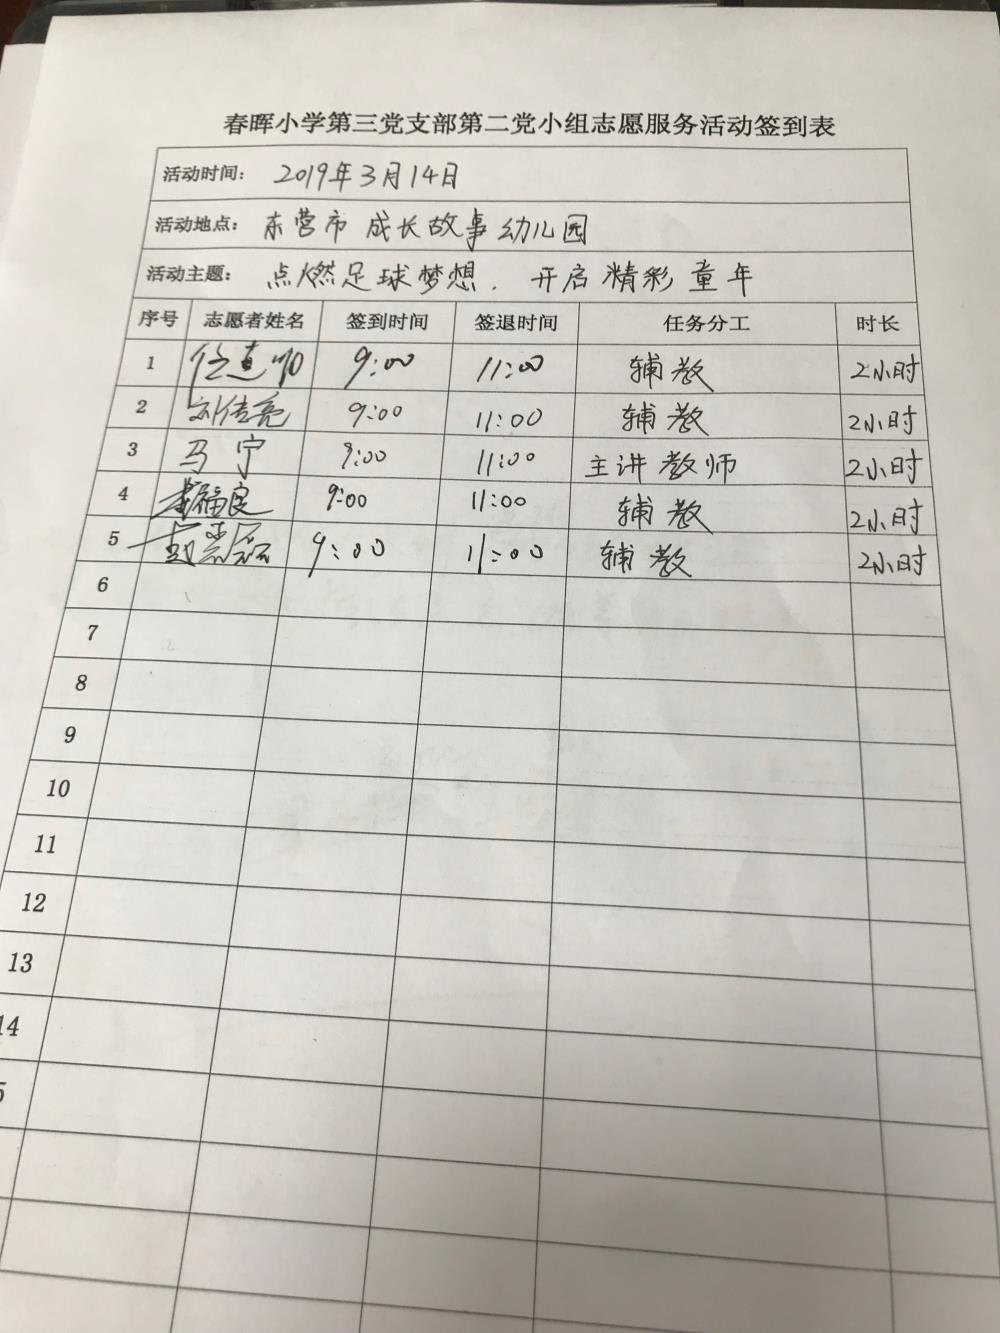 春晖小学第三党支部第二党小组志愿服务活动签到表
活动时间： 2019年3月14日
活动地点： 东营市 成长故事幼儿园
活动主题： 点燃足球梦想. 开启精彩童年
序号 志愿者姓名 签到时间 签退时间 任务分工 时长
1 9:00 11:00 辅教 2小时
2 刘传亮 9:00 11:00 辅教 2小时
3 马宁 9:00 11:00 主讲教师 2小时
4 福良 9:00 11:00 辅教 2小时
5 9:00 11:00 辅教 2小时
6
7
8
9
10
11
12
13
14
5